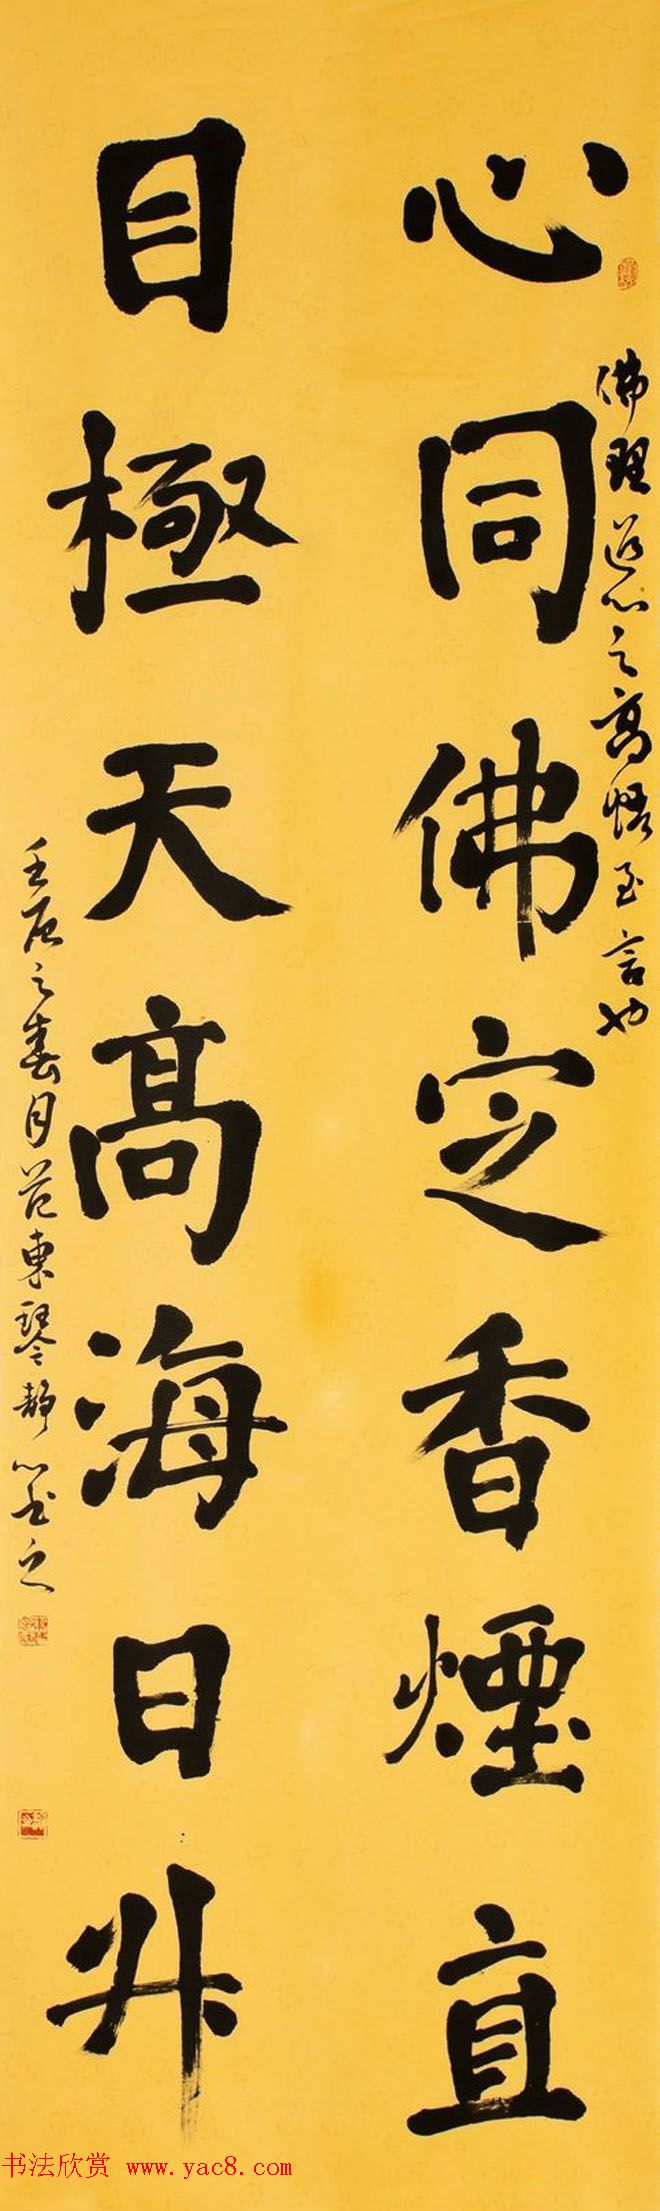 佛理道心之高悟至言也
心同佛定香煙直
目極天高海日升
壬辰之春月范東琴静心书之
书法欣赏 www.yac8.com